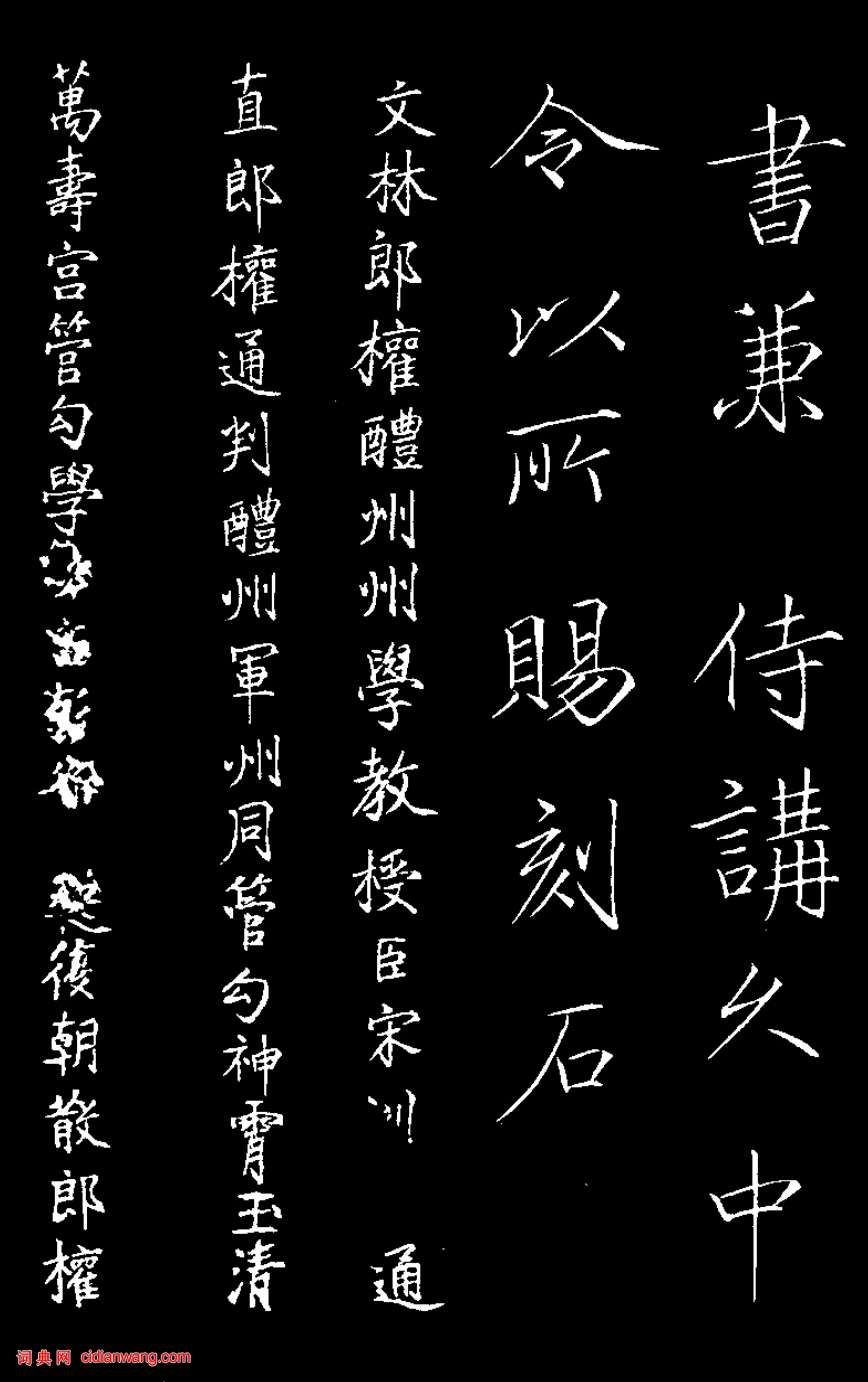 書兼侍講久中
令以所賜刻石
文林郎權醴州州學教授臣宋 通
直郎權通判醴州軍州同管勾神霄玉清
萬壽宮管勾學 復朝散郎權
词典网 cidianwang.com